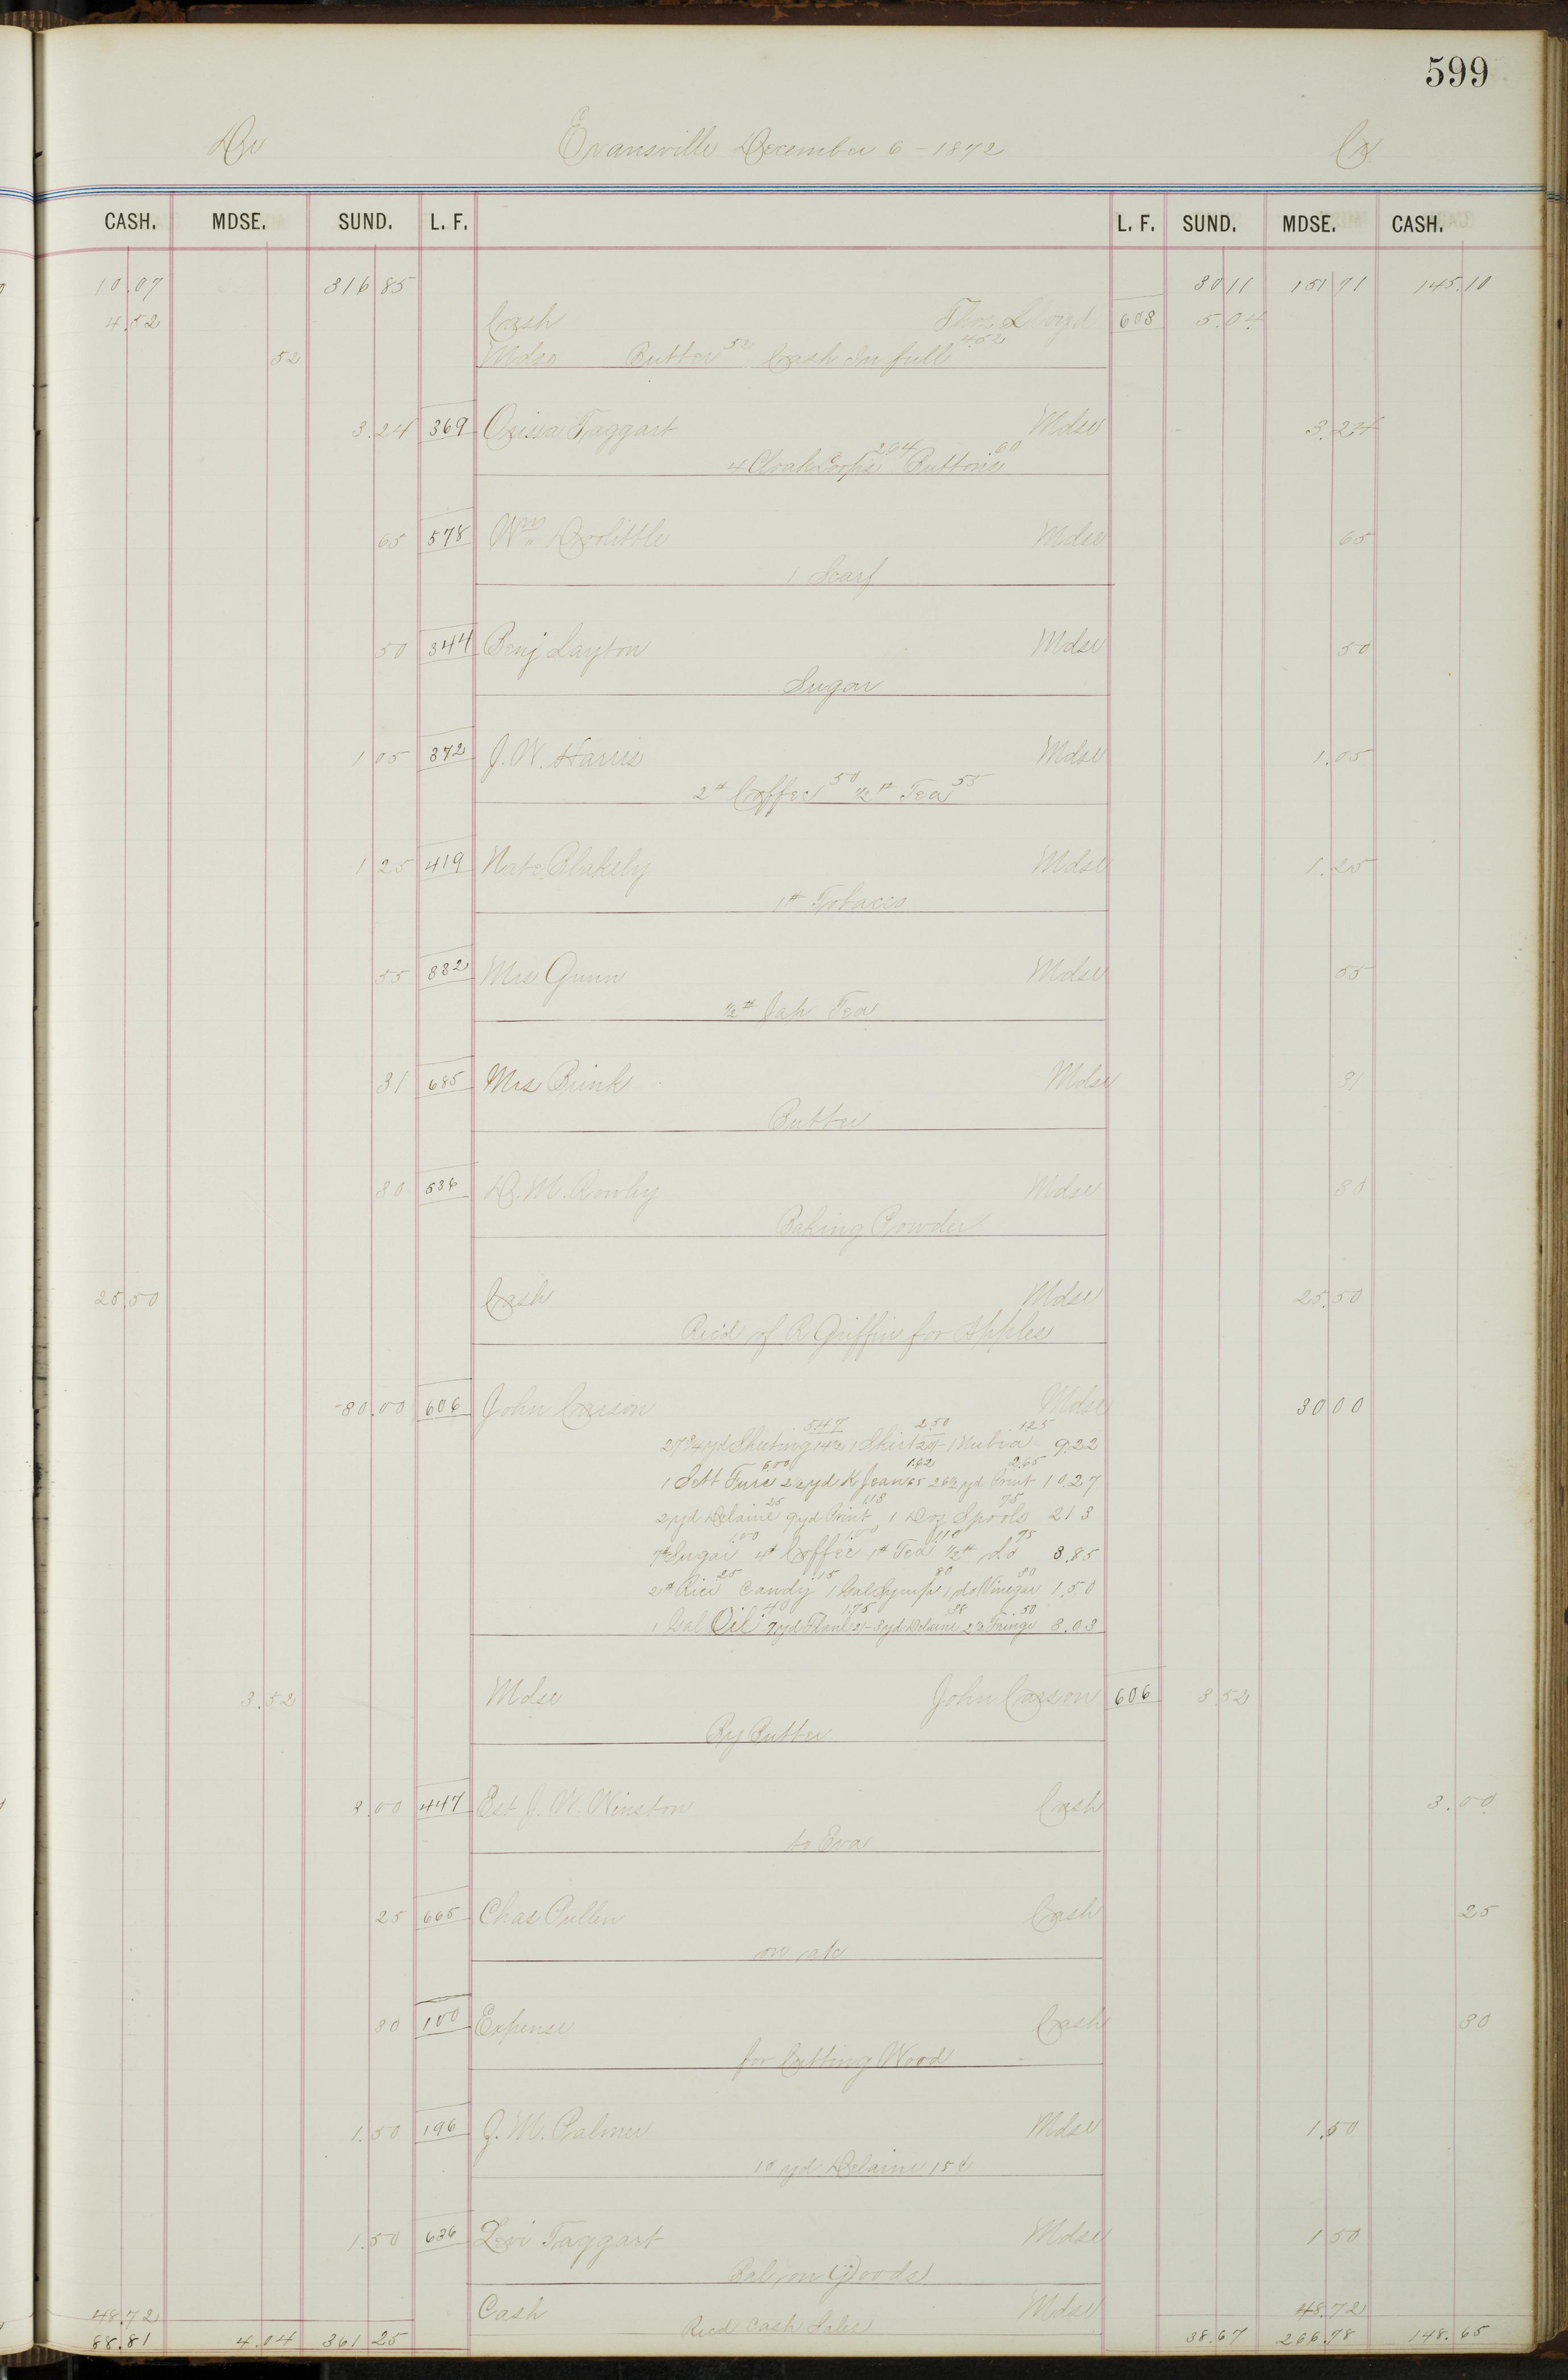 599
Dr Evansville December 6 - 1872 Cr
CASH. MDSE. SUND. L. F. L. F. SUND. MDSE. CASH.
10.07 316 85 30 11 151 71 145.10
4.52 Cash Thos Lloyd 603 5.04
52 Mdse Butter 52 Cash In full 4.52
3.24 369 Orissa Taggart Mdse 3.24
4 Cloak Loops 2.64 Buttons .60
65 578 Wm Doolittle Mdse 65
1 Scarf
50 344 Benj Layton Mdse 50
Sugar
1 05 372 J. W. Harris Mdse 1.05
2# Coffee 50 1/2# Tea 55
1 25 419 Nate Blakely Mdse 1.25
1# Tobacco
55 332 Mrs Gunn Mdse 55
1/2# Jap Tea
31 685 Mrs Brink Mdse 31
Butter
30 536 D. M. Rowley Mdse 30
Baking Powder
25.50 Cash Mdse 25.50
Recd of R Griffin for Apples
30.00 606 John Carson Mdse 30 00
27 3/4 yd Sheeting 5.47 1 Skirt 2.50 1 Nubia 1.25 9.22
1 Sett Furs 6.00 2 1/2 yd K Jean 65 1.62 26 1/2 yd Print 2.65 10.27
2 yd Delaine 25 9 yd Print 1.13 1 Doz Spools 75 213
7# Sugar 1.00 4# Coffee 1.00 1# Tea 1.10 1/2# do 75 3.85
2# Rice 25 Candy 15 1 Gal Syrup 80 1 do Vinegar 30 1.50
1 Gal Oil 40 7 yd Flanl 1.75 3 yd Delaine 38 2 Fringe .50 3.03
3.52 Mdse John Carson 606 3 52
By Butter
3.00 447 Est J. W. Winston Cash 3.00
to Eva
25 665 Chas Pullen Cash 25
on a/c
30 100 Expense Cash 30
for Cutting Wood
1.50 196 J. M. Palmer Mdse 1.50
10 yd Delaine 15c
1.50 636 Levi Taggart Mdse 1 50
Bal on Goods
48.72 Cash Mdse 48.72
Recd Cash Sales
88.81 4.04 361 25 38.67 266.78 148.65